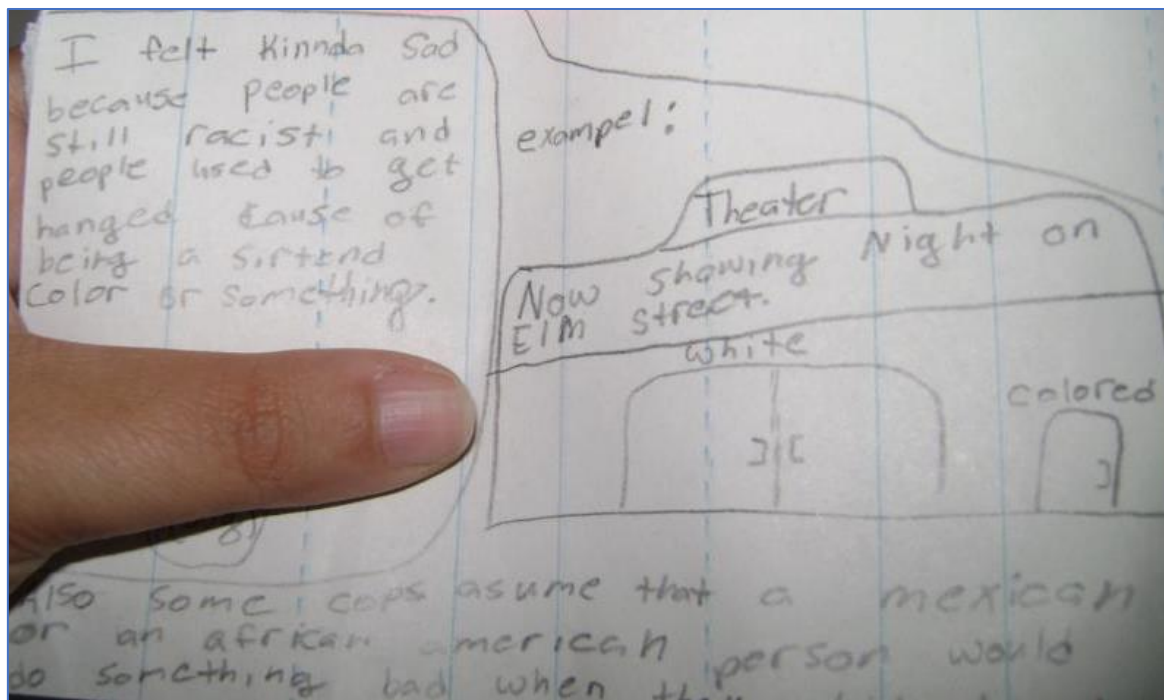 I felt Kinnda Sad
because people are
still racist and
people used to get
hanged cause of
being a sirtend
color or something.
exampel:
Theater
Now showing Night on
Elm street.
white
colored
Also some cops asume that a mexican
or an african american person would
do something bad when